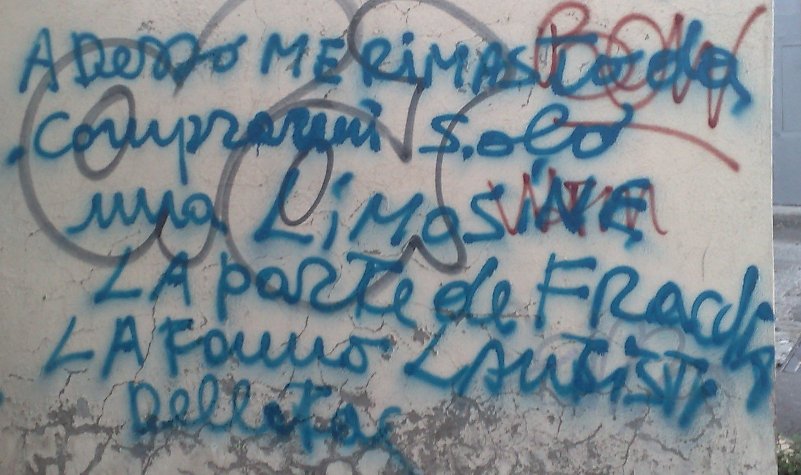 ADesso MERiMASTo da
comprarmi solo
una LiMOSiNE
LA parte de FRaadi
LA Fanno L'AUTiSTi
Delle Fac
BOW